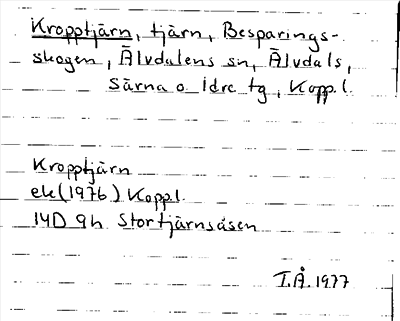 Kropptjärn, tjärn, Besparings-
skogen, Älvdalens sn, Älvdals,
Särna o. Idre tg, Kopp.l.
Kropptjärn
ek(1976) Kopp.l.
14D 9h Stortjärnsåsen
I.Å. 1977